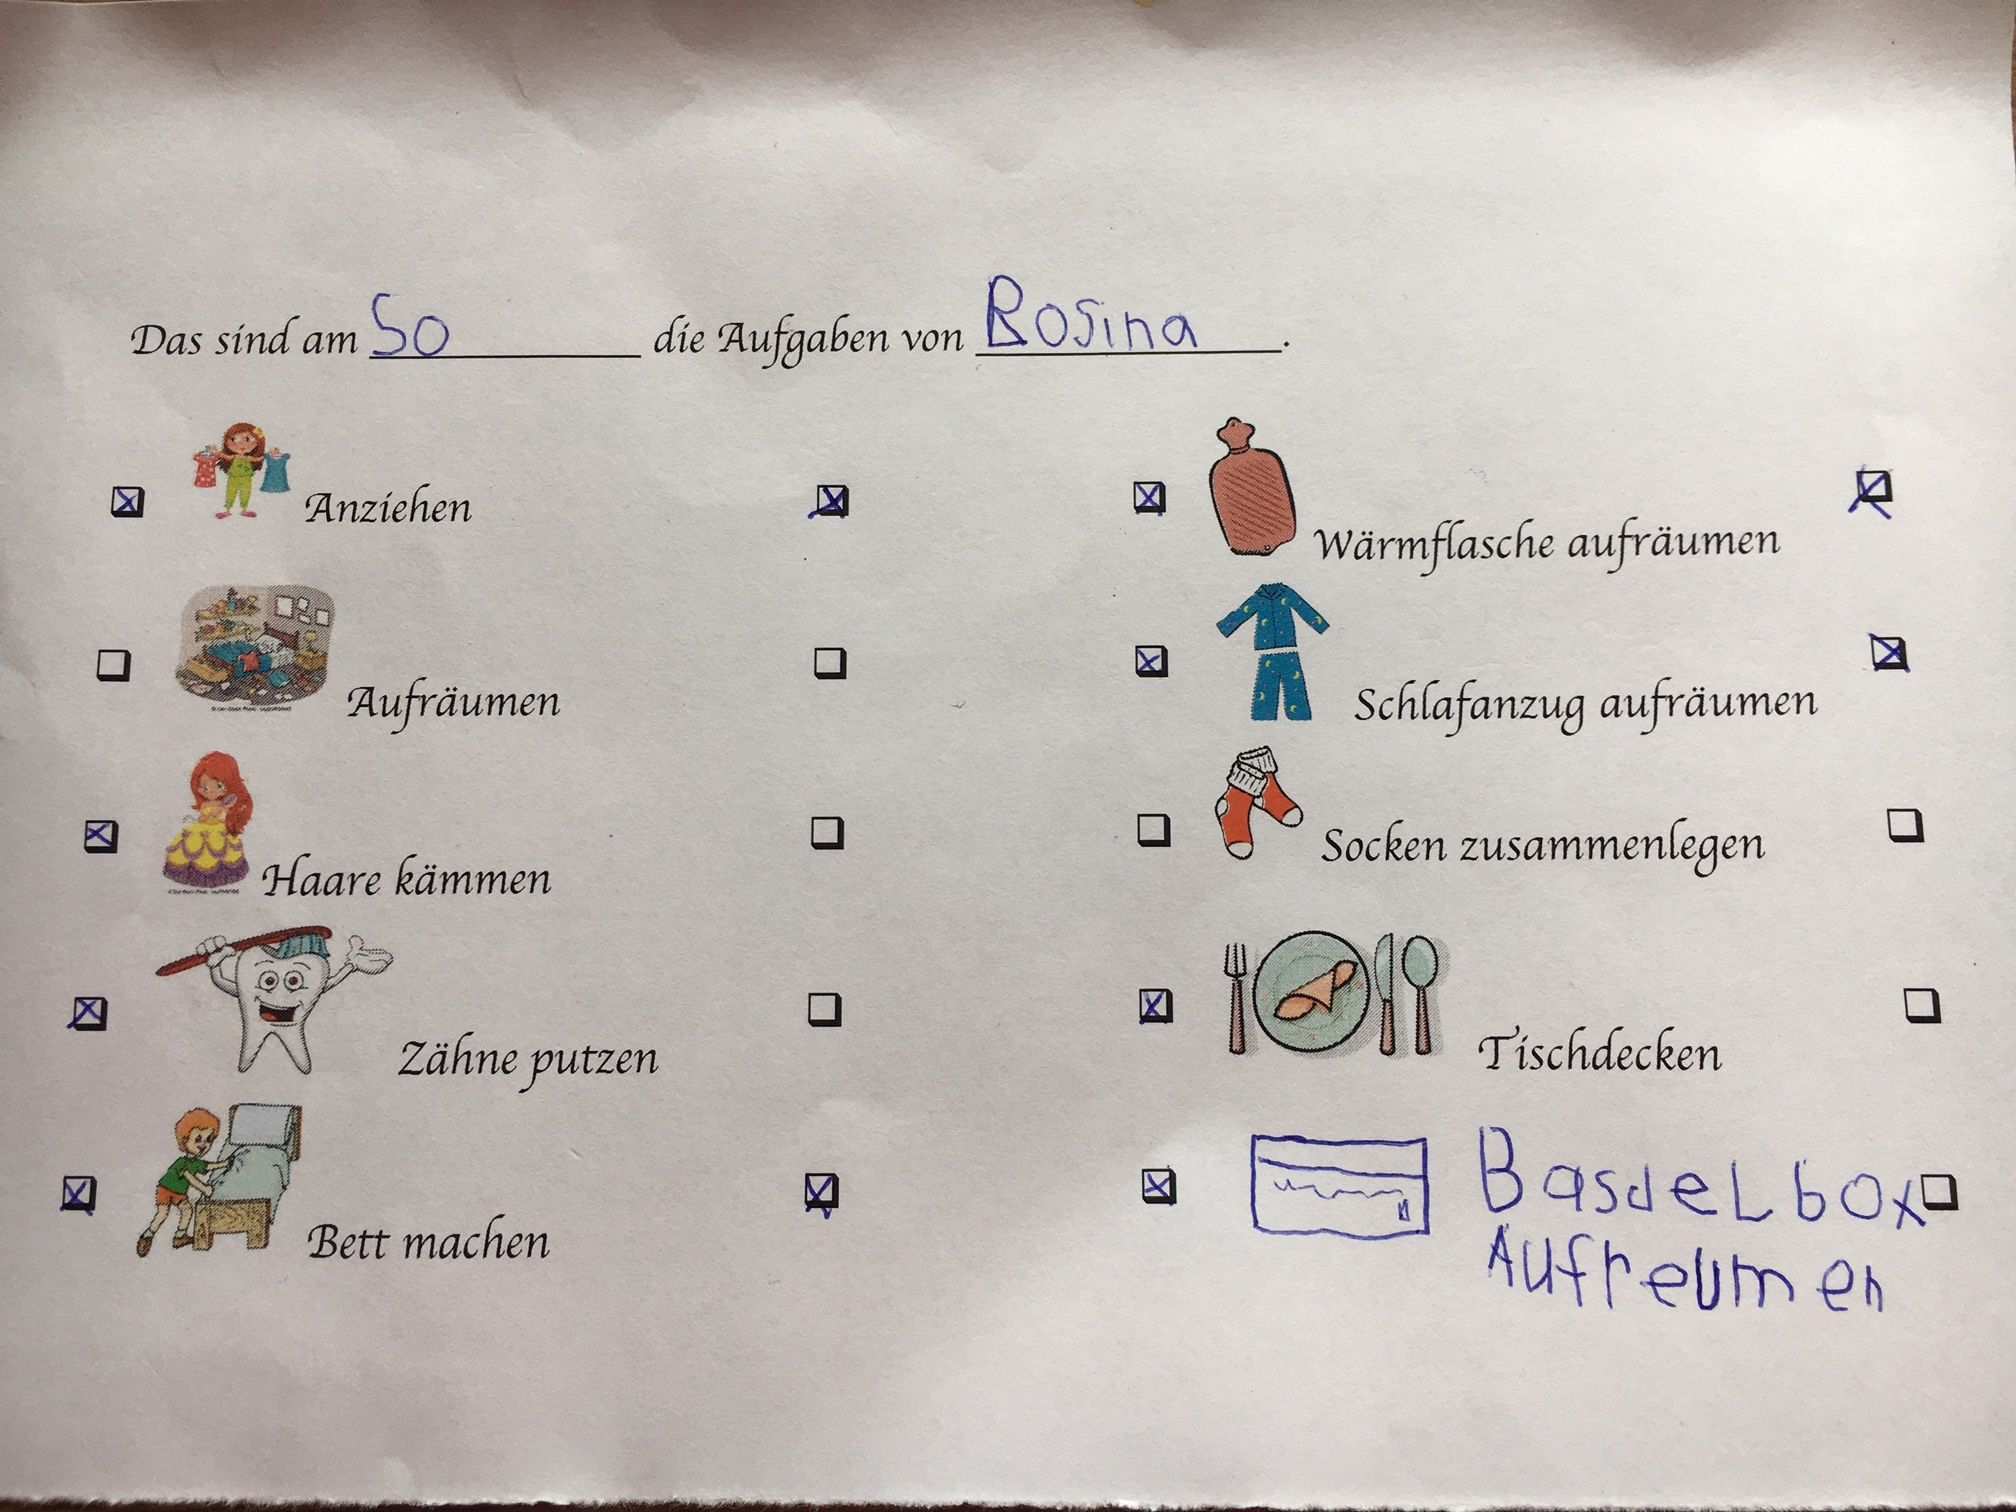 Das sind am So die Aufgaben von Rosina.
Anziehen
Aufräumen
Haare kämmen
Zähne putzen
Bett machen
Wärmflasche aufräumen
Schlafanzug aufräumen
Socken zusammenlegen
Tischdecken
Basdelbox
Aufreumen